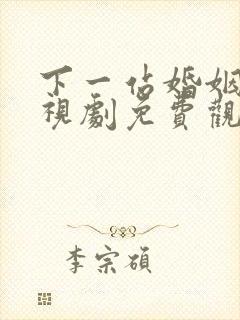 下一佔婚姻
視劇免費觀
李宗碩